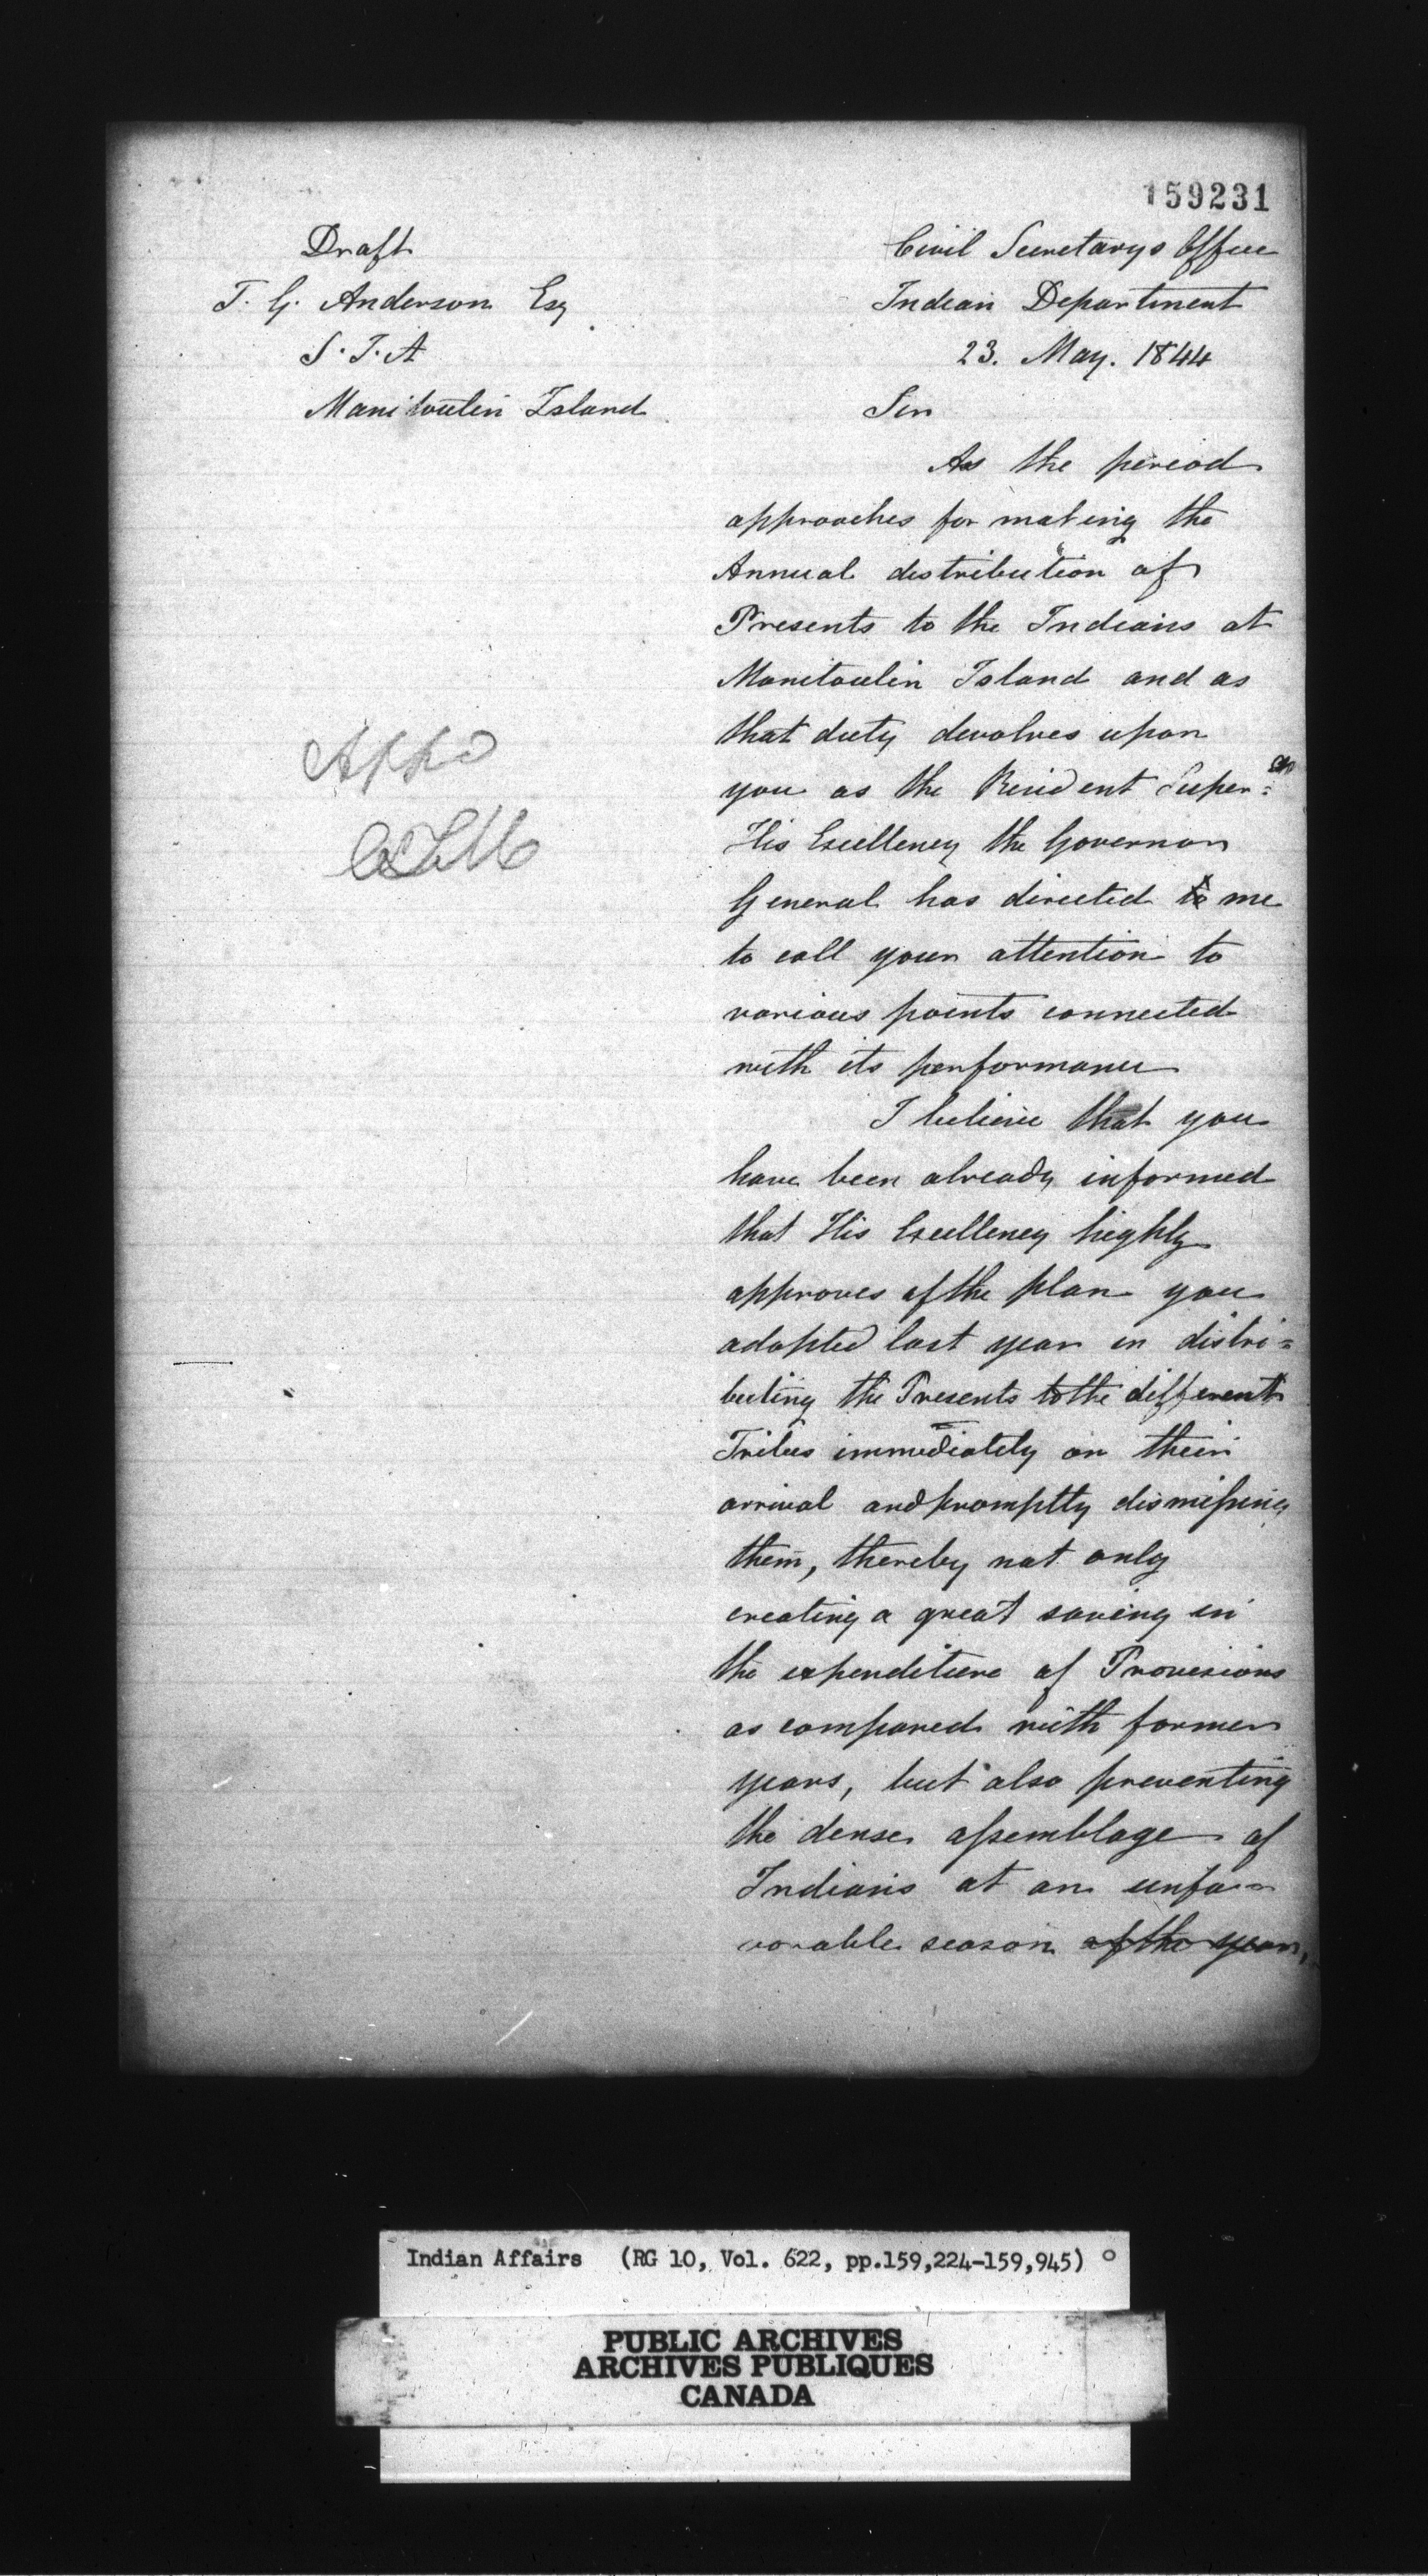 159231
Draft
T. G. Anderson Esq
S. I. A
Manitoulin Island
Civil Secretarys Office
Indian Department
23. May. 1844
Sir
As the period
approaches for making the
Annual distribution of
Presents to the Indians at
Manitoulin Island and as
that duty devolves upon
you as the Resident Super=
His Excellency the Governor
General has directed to me
to call your attention to
various points connected
with its performance
I believe that you
have been already informed
that His Excellency highly
approves of the plan you
adopted last year in distri=
buting the Presents to the different
Tribes immediately on their
arrival and promptly dismissing
them, thereby not only
creating a great saving in
the expenditure of Provisions
as compared with former
years, but also preventing
the dense assemblage of
Indians at an unfa=
vorable season of the year,
Indian Affairs (RG 10, Vol. 622, pp.159,224-159,945)
PUBLIC ARCHIVES
ARCHIVES PUBLIQUES
CANADA